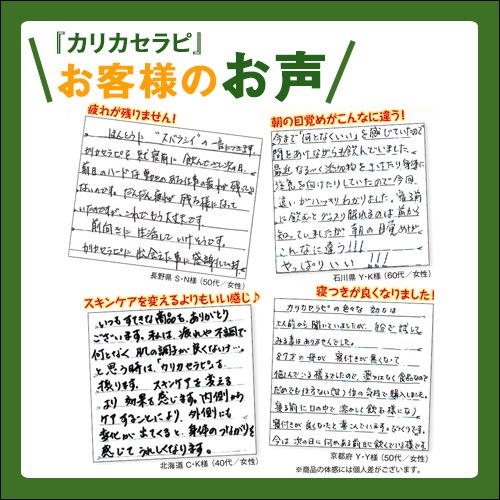 『カリカセラピ』
お客様のお声
疲れが残りません!
ほんとうに"スバラシイ"の一言につきます。
カリカセラピを就寝前に飲んでさて次の日。
前日のハードな
いたのですが、これでもう大丈夫です。
前向きに生活していけそうです。
カリカセラピに出会えた事に感謝しています。
長野県 S・N様（50代／女性）
朝の目覚めがこんなに違う!
今まで"何となくいい"を感じていたので
間をあけながらも飲んでいました。
最近なるべく添加物をさけたり身体に
注意を向けたりしていたので今回
違いがハッキリわかりました。寝る前
に飲むとグッスリ眠れるのは前から
知っていましたが朝の目覚めが
こんなに違う!!!
やっぱりいい!!!
石川県 Y・K様（60代／女性）
スキンケアを変えるよりもいい感じ♪
いつもすてきな商品を、ありがとう
ございます。私は、疲れや不調で
何となく肌の調子が良くないナ…。
と思う時は、『カリカセラピ』を
摂ります。スキンケアを変える
より効果を感じます。内側から
ケアすることにより、外側にも
変化が出てくると、身体のつながりを
感じてうれしくなります。
北海道 C・K様（40代／女性）
寝つきが良くなりました!
カリカセラピの色々な効力は
友人から聞いていましたが、自分で試して
みる事はありませんでした。
87才の母が寝付きが悪くなって
悩んでいる様子でしたので、薬ではなく食品なので
寝付きが良くなったと喜んでいます。びっくりです。
京都府 Y・Y様（50代／女性）
※商品の体感には個人差がございます。